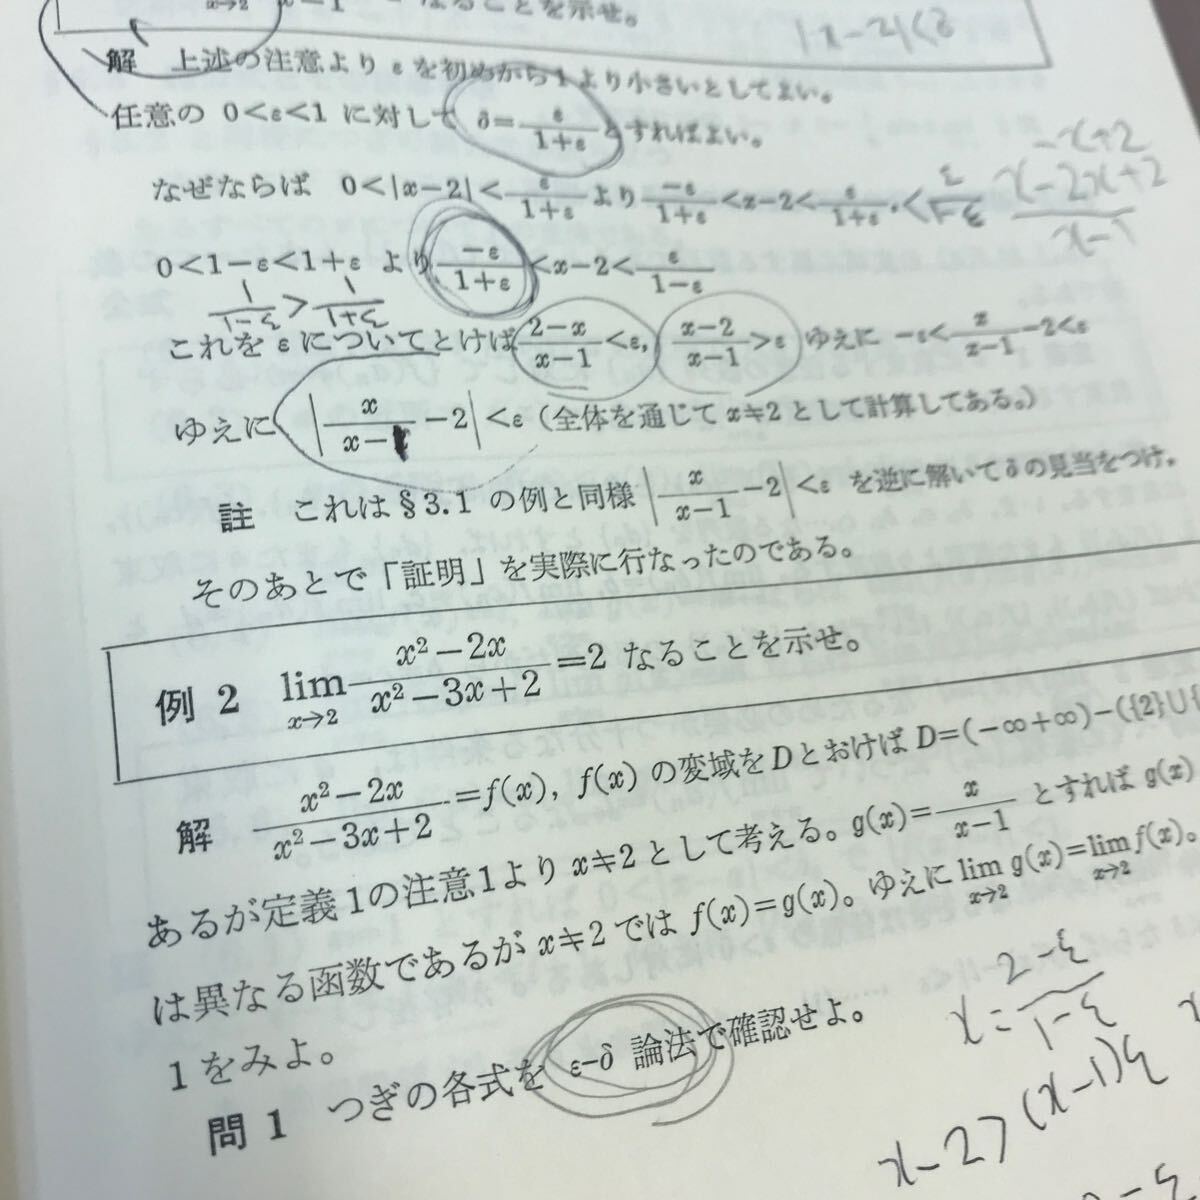 x→2 x−1 なることを示せ。
|x−2|<3
解 上述の注意より ε を初めから1より小さいとしてよい。
任意の 0<ε<1 に対して δ=ε/(1+ε) とすればよい。
−x+2
x−2x+2
x−1
なぜならば 0<|x−2|<ε/(1+ε) より −ε/(1+ε)<x−2<ε/(1+ε).<ε/(1−ε)
0<1−ε<1+ε より −ε/(1+ε)<x−2<ε/(1−ε)
1/(1−ε)>1/(1+ε)
これを ε についてとけば (2−x)/(x−1)<ε, (x−2)/(x−1)>ε ゆえに −ε<x/(x−1)−2<ε
ゆえに |x/(x−1)−2|<ε (全体を通じて x≠2 として計算してある。)
註 これは §3.1 の例と同様 |x/(x−1)−2|<ε を逆に解いて δ の見当をつけ,
そのあとで「証明」を実際に行なったのである。
例 2 lim x→2 (x²−2x)/(x²−3x+2)=2 なることを示せ。
解 (x²−2x)/(x²−3x+2)=f(x), f(x) の変域を D とおけば D=(−∞+∞)−({2}∪{
あるが定義1の注意1より x≠2 として考える。g(x)=x/(x−1) とすれば g(x)
は異なる函数であるが x≠2 では f(x)=g(x)。ゆえに lim x→2 g(x)=lim x→2 f(x)。
1をみよ。
x=(2−ε)/(1−ε)
問 1 つぎの各式を ε−δ 論法で確認せよ。
x−2>(x−1)ε